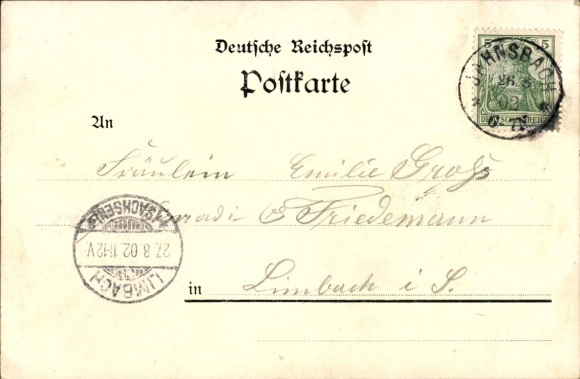 Deutsche Reichspost
Postkarte
5 5
JAHNSBACH
26 8
02
DEUTSCHES REICH
An
Fräulein Emilie Groß
Conradi & Friedemann
in Limbach i S.
(SACHSEN)
27.8.02. 11-12V.
LIMBACH